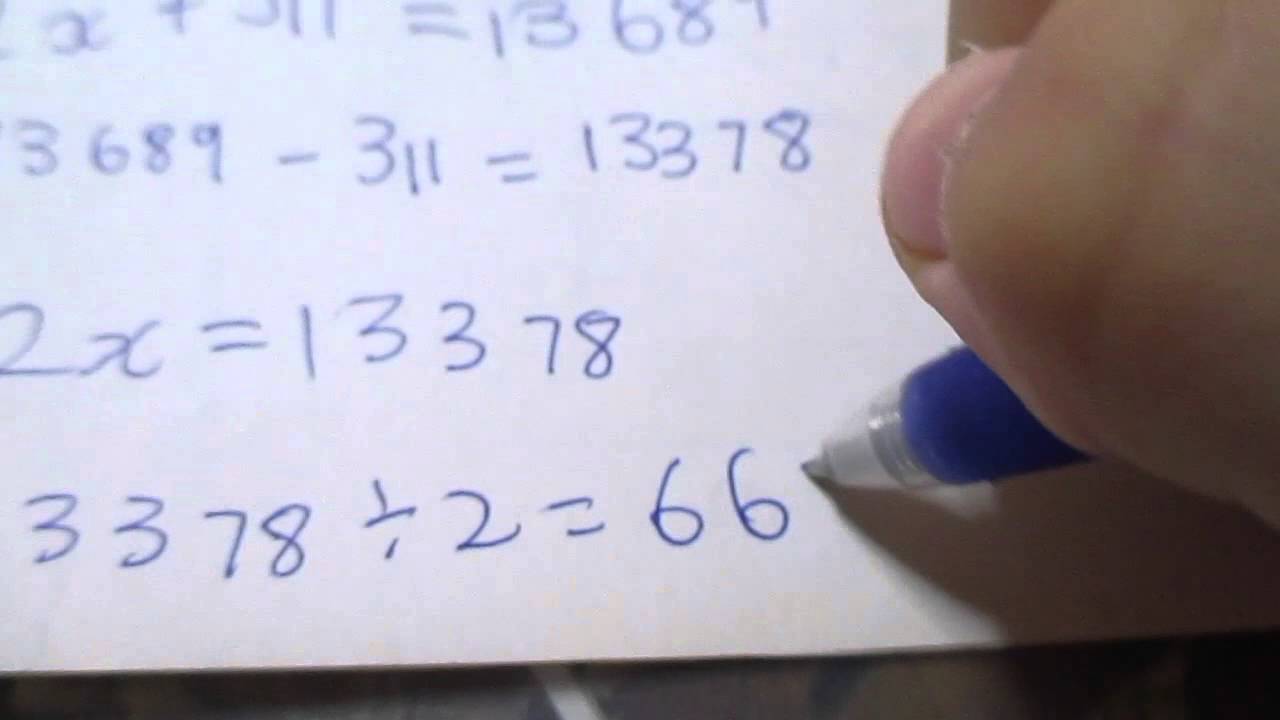 x + 311 = 13689
3689 - 311 = 13378
2x = 13378
3378 ÷ 2 = 66